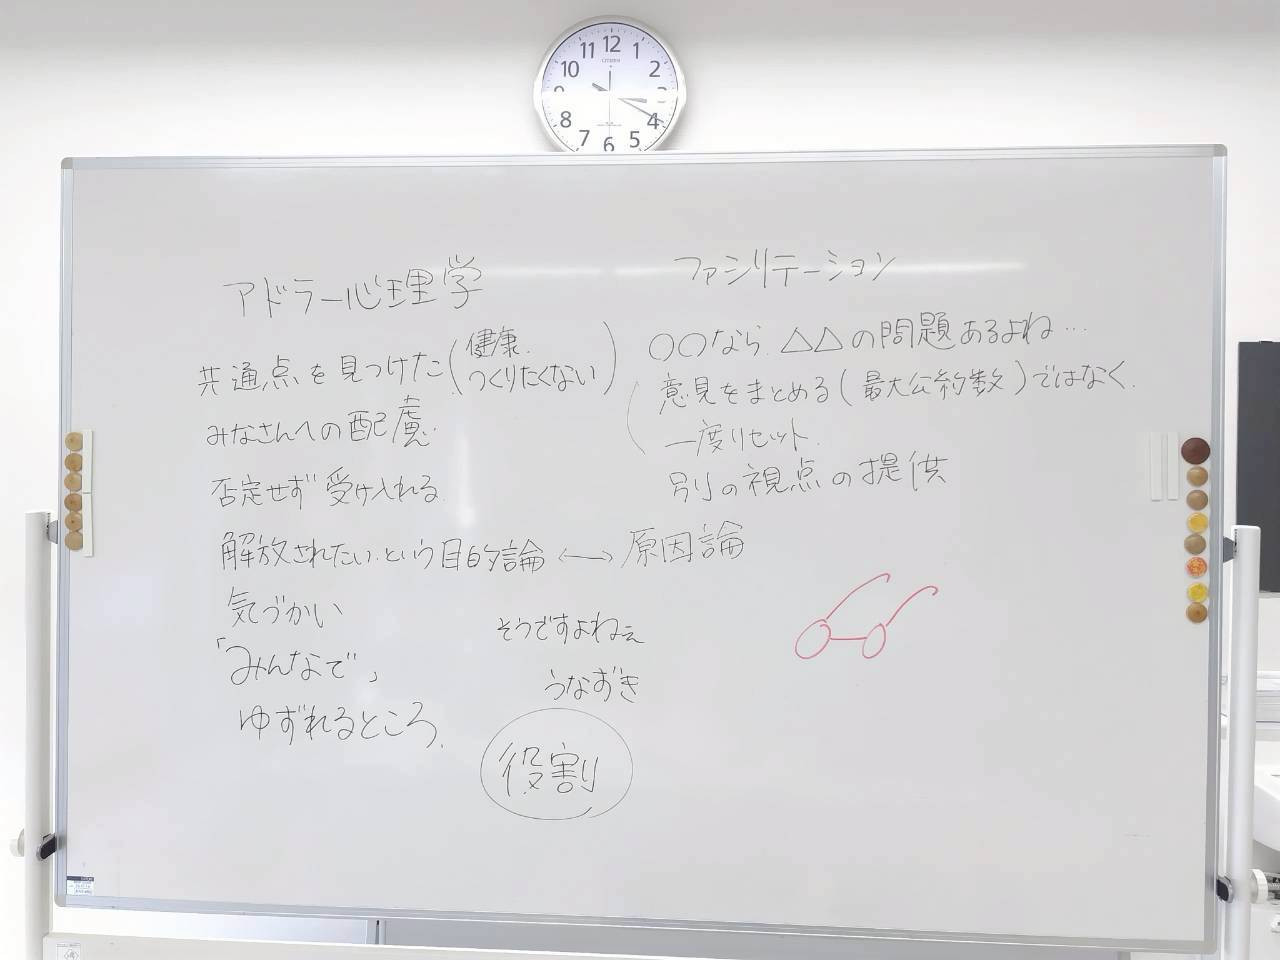 12
11
1
10
2
8
4
7
6
5
CITIZEN
アドラー心理学
共通点を見つけた(健康.
つくりたくない)
みなさんへの配慮.
否定せず受け入れる
解放されたい.という目的論 ←→ 原因論
気づかい
「みんなで」
ゆずれるところ.
そうですよねぇ
うなずき
役割
ファシリテーション
○○なら.△△の問題あるよね…
意見をまとめる(最大公約数)ではなく.
一度リセット.
別の視点の提供